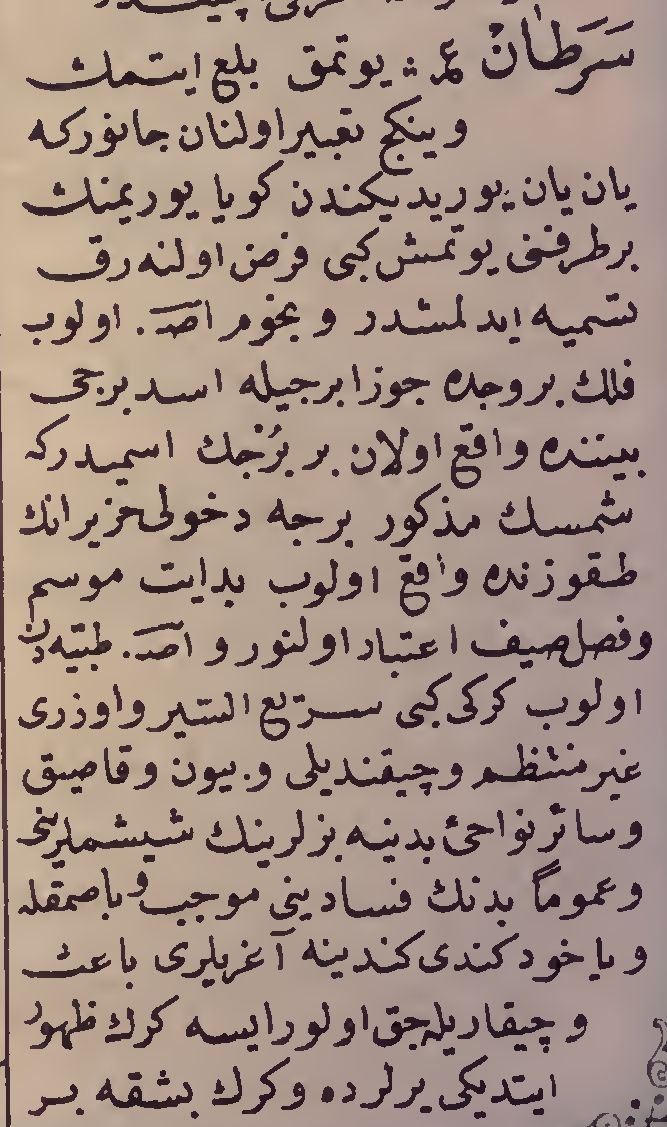 سَرَطَانْ عر: يوتمق بلع ايتمك
وينكج تعبير اولنان جانوركه
يان يان يوريديكندن كويا يوريمنك
برطرفنى يوتمش كبى فرض اولنه رق
تسميه ايدلمشدر ونجوم اصـ. اولوب
فلك بروجده جوزا برجيله اسد برجى
بيننده واقع اولان بر بُرْجك اسميدركه
شمسك مذكور برجه دخولى حزيرانك
طقوزنده واقع اولوب بدايت موسم
وفصل صيف اعتبار اولنور و اصـ. طبيه دن
اولوب كركى كبى سريع السّير و اوزرى
غير منتظم وچيقنديلى وبيون وقاصيق
وسائر نواحئ بدنيه بزلرينك شيشملرينى
وعموماً بدنك فسادينى موجب و باصمقله
وياخود كندى كندينه آغريلرى باعث
وچيقاريله جق اولورايسه كرك ظهور
ايتديكى يرلرده وكرك بشقه بر